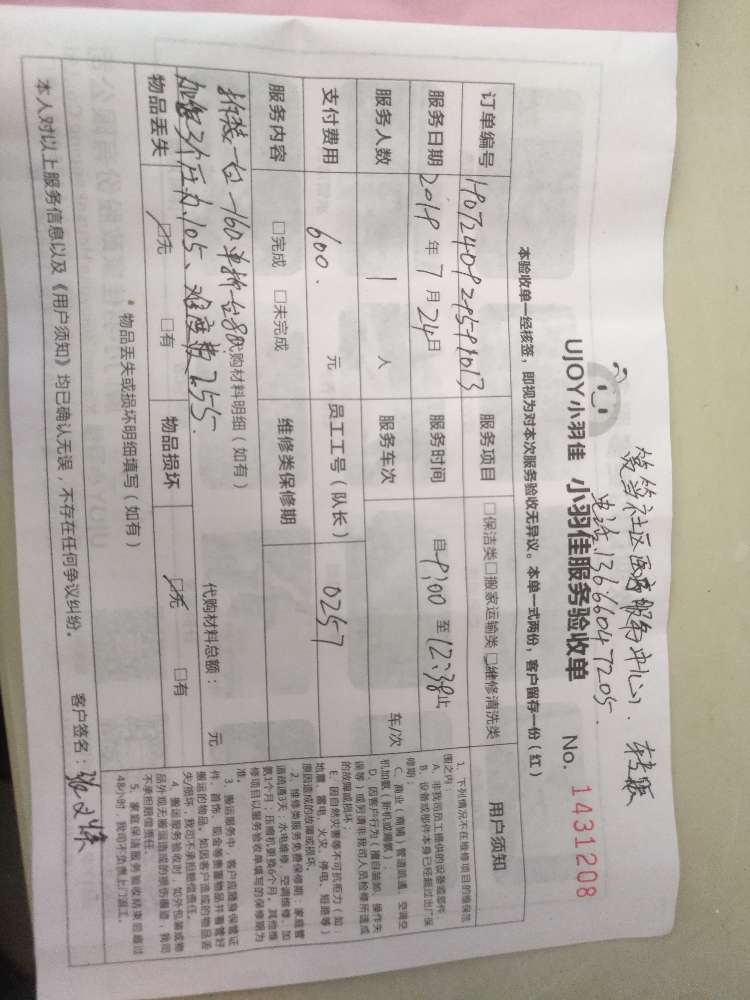 社区医疗服务中心. 转账
电话.13666047205.
UJOY小羽佳 小羽佳服务验收单 No. 1431208
本验收单一经核签,即视为对本次服务验收无异议。本单一式两份,客户留存一份(红)
订单编号 服务项目 □保洁类□搬家运输类□维修清洗类
服务日期 2019年7月24日 服务时间 自9:00至12:38止
服务人数 1 人 服务车次 车/次
支付费用 600. 元 员工工号(队长) 0257
服务内容 □完成 □未完成 维修类保修期
拆装一台-160单拆一台80 代购材料明细(如有) 代购材料总额: 元
加氟3个压力.105、难度费255.
物品丢失 ☑无 □有 物品损坏 ☑无 □有
*物品丢失或损坏明细填写(如有)
本人对以上服务信息以及《用户须知》均已确认无误,不存在任何争议纠纷。 客户签名:
用户须知
1、下列情况不在维修项目的维保范
围之内:
A、非我司员工提供的设备或部件。
B、设备或部件本身已经超过出厂保
修期;
C、商业(商铺)管道疏通、空调空
机加氨(新机或漏氨);
D、因客户行为(擅自装卸、操作失
误等)或另请非我司人员检修所造成
的故障或损坏。
E、因自然灾害等不可抗拒力(如:
地震、雷电、火灾、停电、短路等)
原因造成的故障或损坏。
2、维修类服务免费保修期:家庭管
道疏通3天;水电维修、空调维修、加
氨1个月;压缩机更换6个月。其他维
修项目以服务验收单填写的保修期为
准。
3、搬运服务中,客户应随身保管证
件、首饰、现金等贵重物品并看管好
搬运的物品。如因客户造成的物品丢
失/损坏,我司不承担赔偿责任。
4、搬运服务验收时,如外包装或物
品外观无搬运造成的损伤痕迹,我司
不承担赔偿责任。
5、家庭保洁服务验收结束后超过
48小时,我司不负责上门返工。